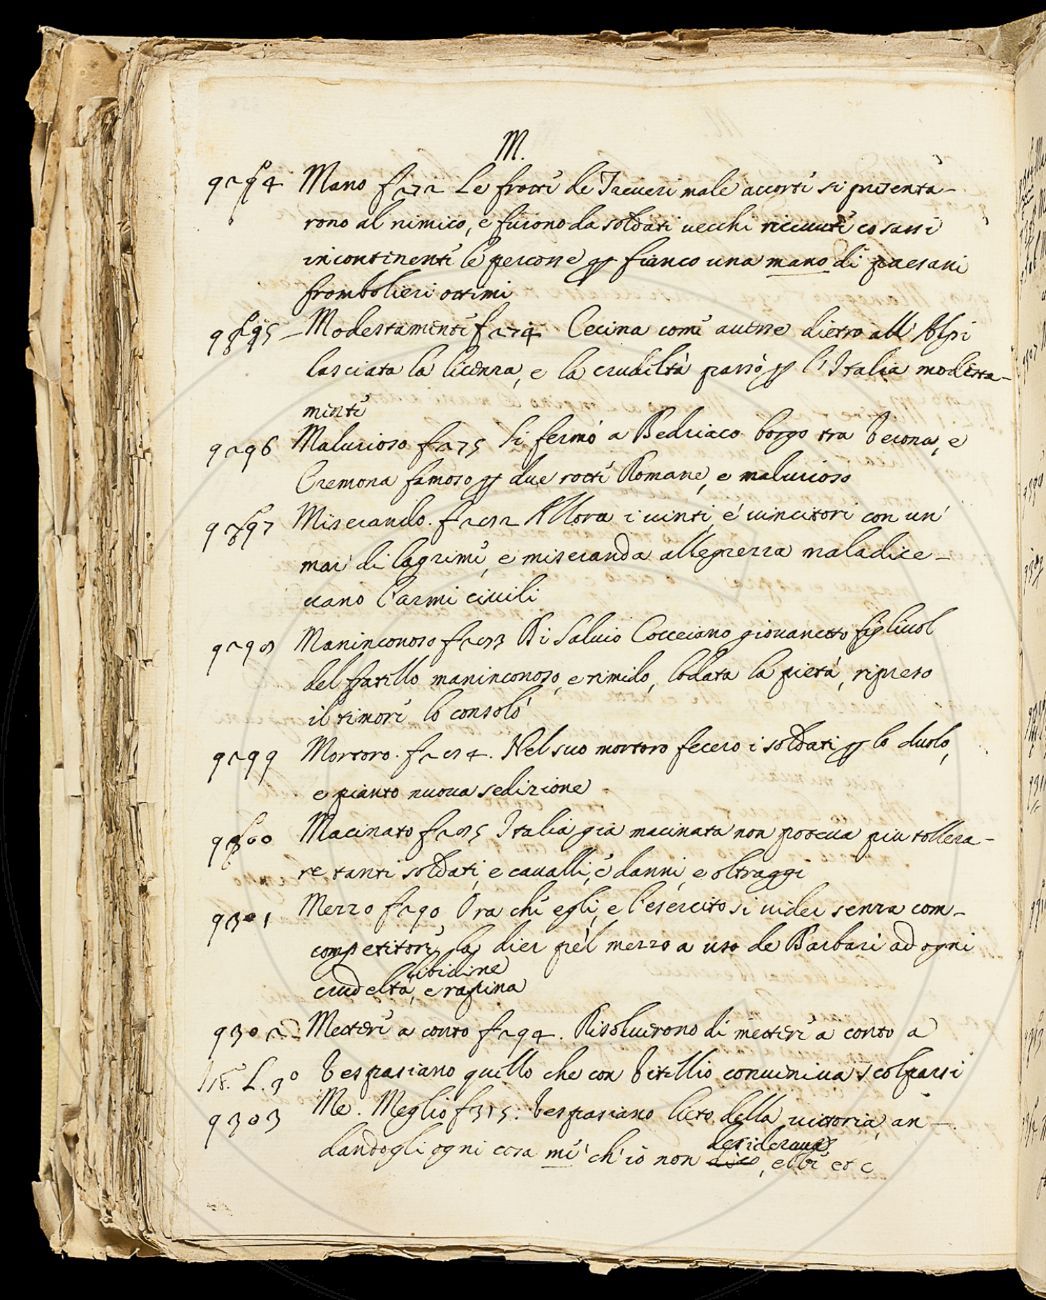 M.
9294 Mano f 272 Le frotte de Treveri male accorte si presenta-
rono al nimico, e furono da soldati vecchi ricevute cosarsi
incontinente le percosse p fianco una mano di paesani
frombolieri ottimi
9295 Modestamente f 274 Cecina come avesse dietro all'Alpi
lasciata la licenza, e la crudeltà passò p l'Italia modesta-
mente
9296 Malurioso f 275 Si fermò a Bedriaco borgo tra Verona, e
Cremona famoso p due rotte Romane, e malurioso
9297 Miserando. f 282 Allora i vinti, e' vincitori con un'
mar di lagrime, e miseranda allegrezza maladice-
vano l'armi civili
9298 Maninconoso f 283 Di Salvio Cocceiano giovanetto figliuol
del fratello maninconoso, e timido, lodata la pietà, ripreso
il timore lo consolò
9299 Mortoro. f 284. Nel suo mortoro fecero i soldati p lo duolo,
e pianto nuova sedizione
9300 Macinato f 285 Italia già macinata non poteva piu tollera-
re tanti soldati, e cavalli, e danni, e oltraggi
9301 Mezzo f 290 Ora che egli, e l'esercito si vider senza com-
competitore, la dier pel mezzo a uso de Barbari ad ogni
libidine
crudeltà, e rapina
9302 Mettere a conto f 294. Risolverono di mettere a conto a
St. L. 3° Vespasiano quello che con Vitellio conveniva scolparsi
9303 Me. Meglio f 315. Vespasiano lieto della vittoria, an-
desiderava
dandogli ogni cosa me' ch'io non dico, ebbe etc